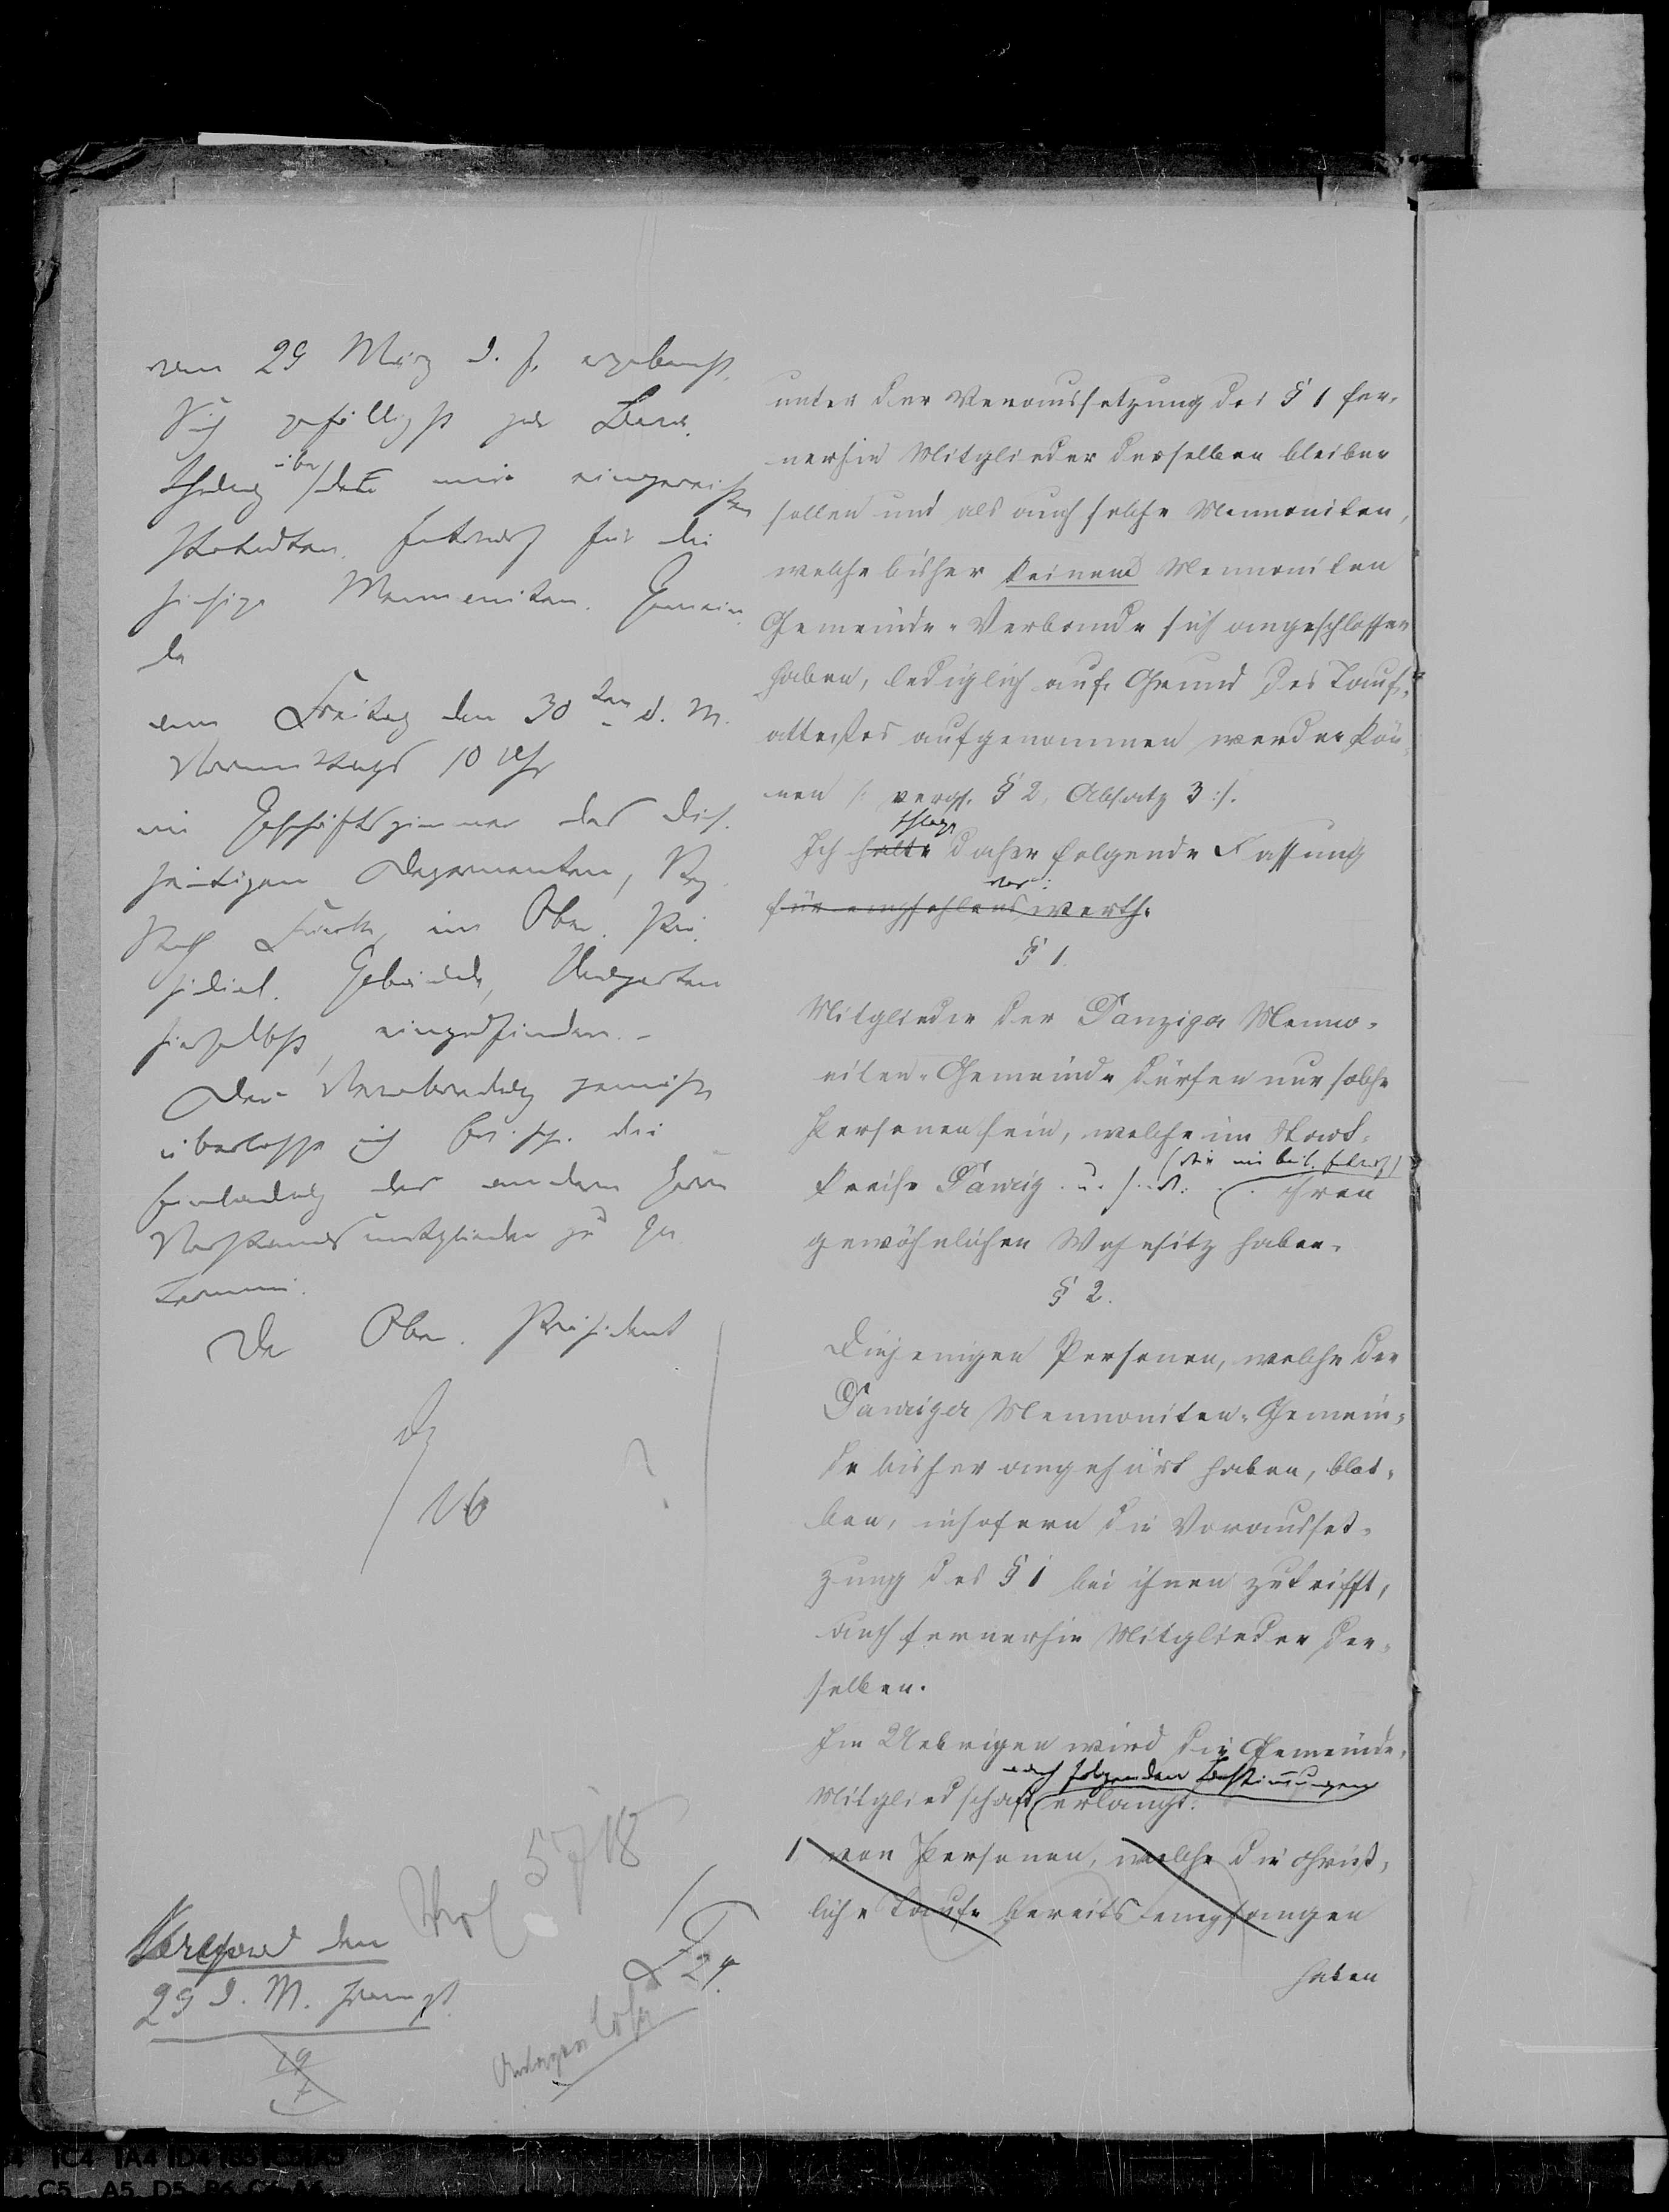 vom 29 März d. J. ergebenst,
Sich gefälligst zur Bera-
thung über den mir eingereichten
Statuten-Entwurf für die
hiesige Mennoniten-Gemein-
de
am Freitag den 30ten d. M.
Vormittags 10 Uhr
im Geschäftszimmer des dies-
seitigen Dezernenten, Reg.
Rath im Ober-Prä-
sidial-Gebäude, Neugarten
hierselbst, einzufinden. –
Der Verabredung gemäß
überlasse ich die
Einladung der anderen Herrn
Vorstandsmitglieder zu
Termin.
Der Ober-Präsident
16
5718
Vorlegen den
29 d. M.
19
24.
unter der Voraussetzung des § 1 fer-
nerhin Mitglieder derselben bleiben
sollen und als auch solche Mennoniten,
welche bisher keinem Mennoniten
Gemeinde-Verbande sich angeschlossen
haben, lediglich auf Grund des Tauf-
attestes aufgenommen werden kön-
nen /: vergl. § 2, Absatz 3 :/.
schlage
Ich halte daher folgende Fassung
vor:
für empfehlenswerth.
§ 1.
Mitglieder der Danziger Menno-
niten-Gemeinde dürfen nur solche
Personen sein, welche im Stadt-
(wie im beil. Entwurf)
kreise Danzig u. s. w. . . ihren
gewöhnlichen Wohnsitz haben.
§ 2.
Diejenigen Personen, welche der
Danziger Mennoniten-Gemein-
de bisher angehört haben, blei-
ben, insofern die Vorausset-
zung des § 1 bei ihnen zutrifft,
auch fernerhin Mitglieder der-
selben.
Im Uebrigen wird die Gemeinde-
nach folgenden Bestimmungen
Mitgliedschaft erlangt:
1 von Personen, welche die christ-
liche Taufe bereits empfangen
haben